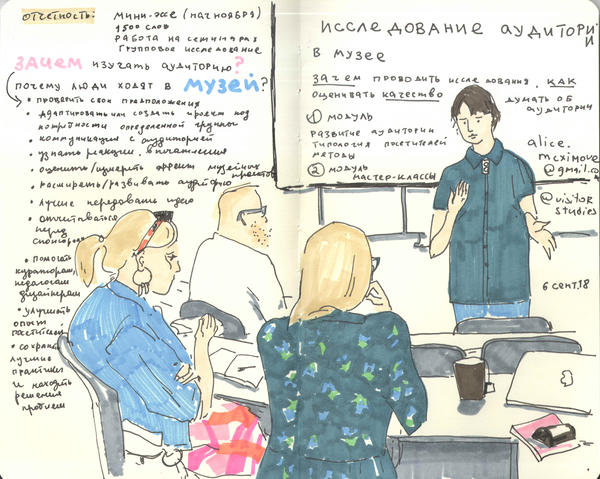 отчетность:
мини-эссе (нач ноября)
1500 слов
работа на семинарах
групповое исследование
зачем изучать аудиторию?
почему люди ходят в музей?
• проверить свои предположения
• адаптировать или создать проект под
потребности определенной группы
• коммуникация с аудиторией
• узнать реакции, впечатления
• оценить/измерить эффект музейных
проектов
• расширять/развивать аудиторию
• лучше передовать идею
• отчитываться
перед
спонсором
• помогать
кураторам,
педагогам
дизайнерам
• улучшить
опыт
посетителей
• сохранять
лучшие
практики
и находить
решения
проблем
исследование аудитории
в музее
зачем проводить исследования, как
оценивать качество
думать об
аудитории
1 модуль
развитие аудитории
типология посетителей
методы
2 модуль
мастер-классы
alice.
@gmail.co
@visitor
studies
6 сент.18